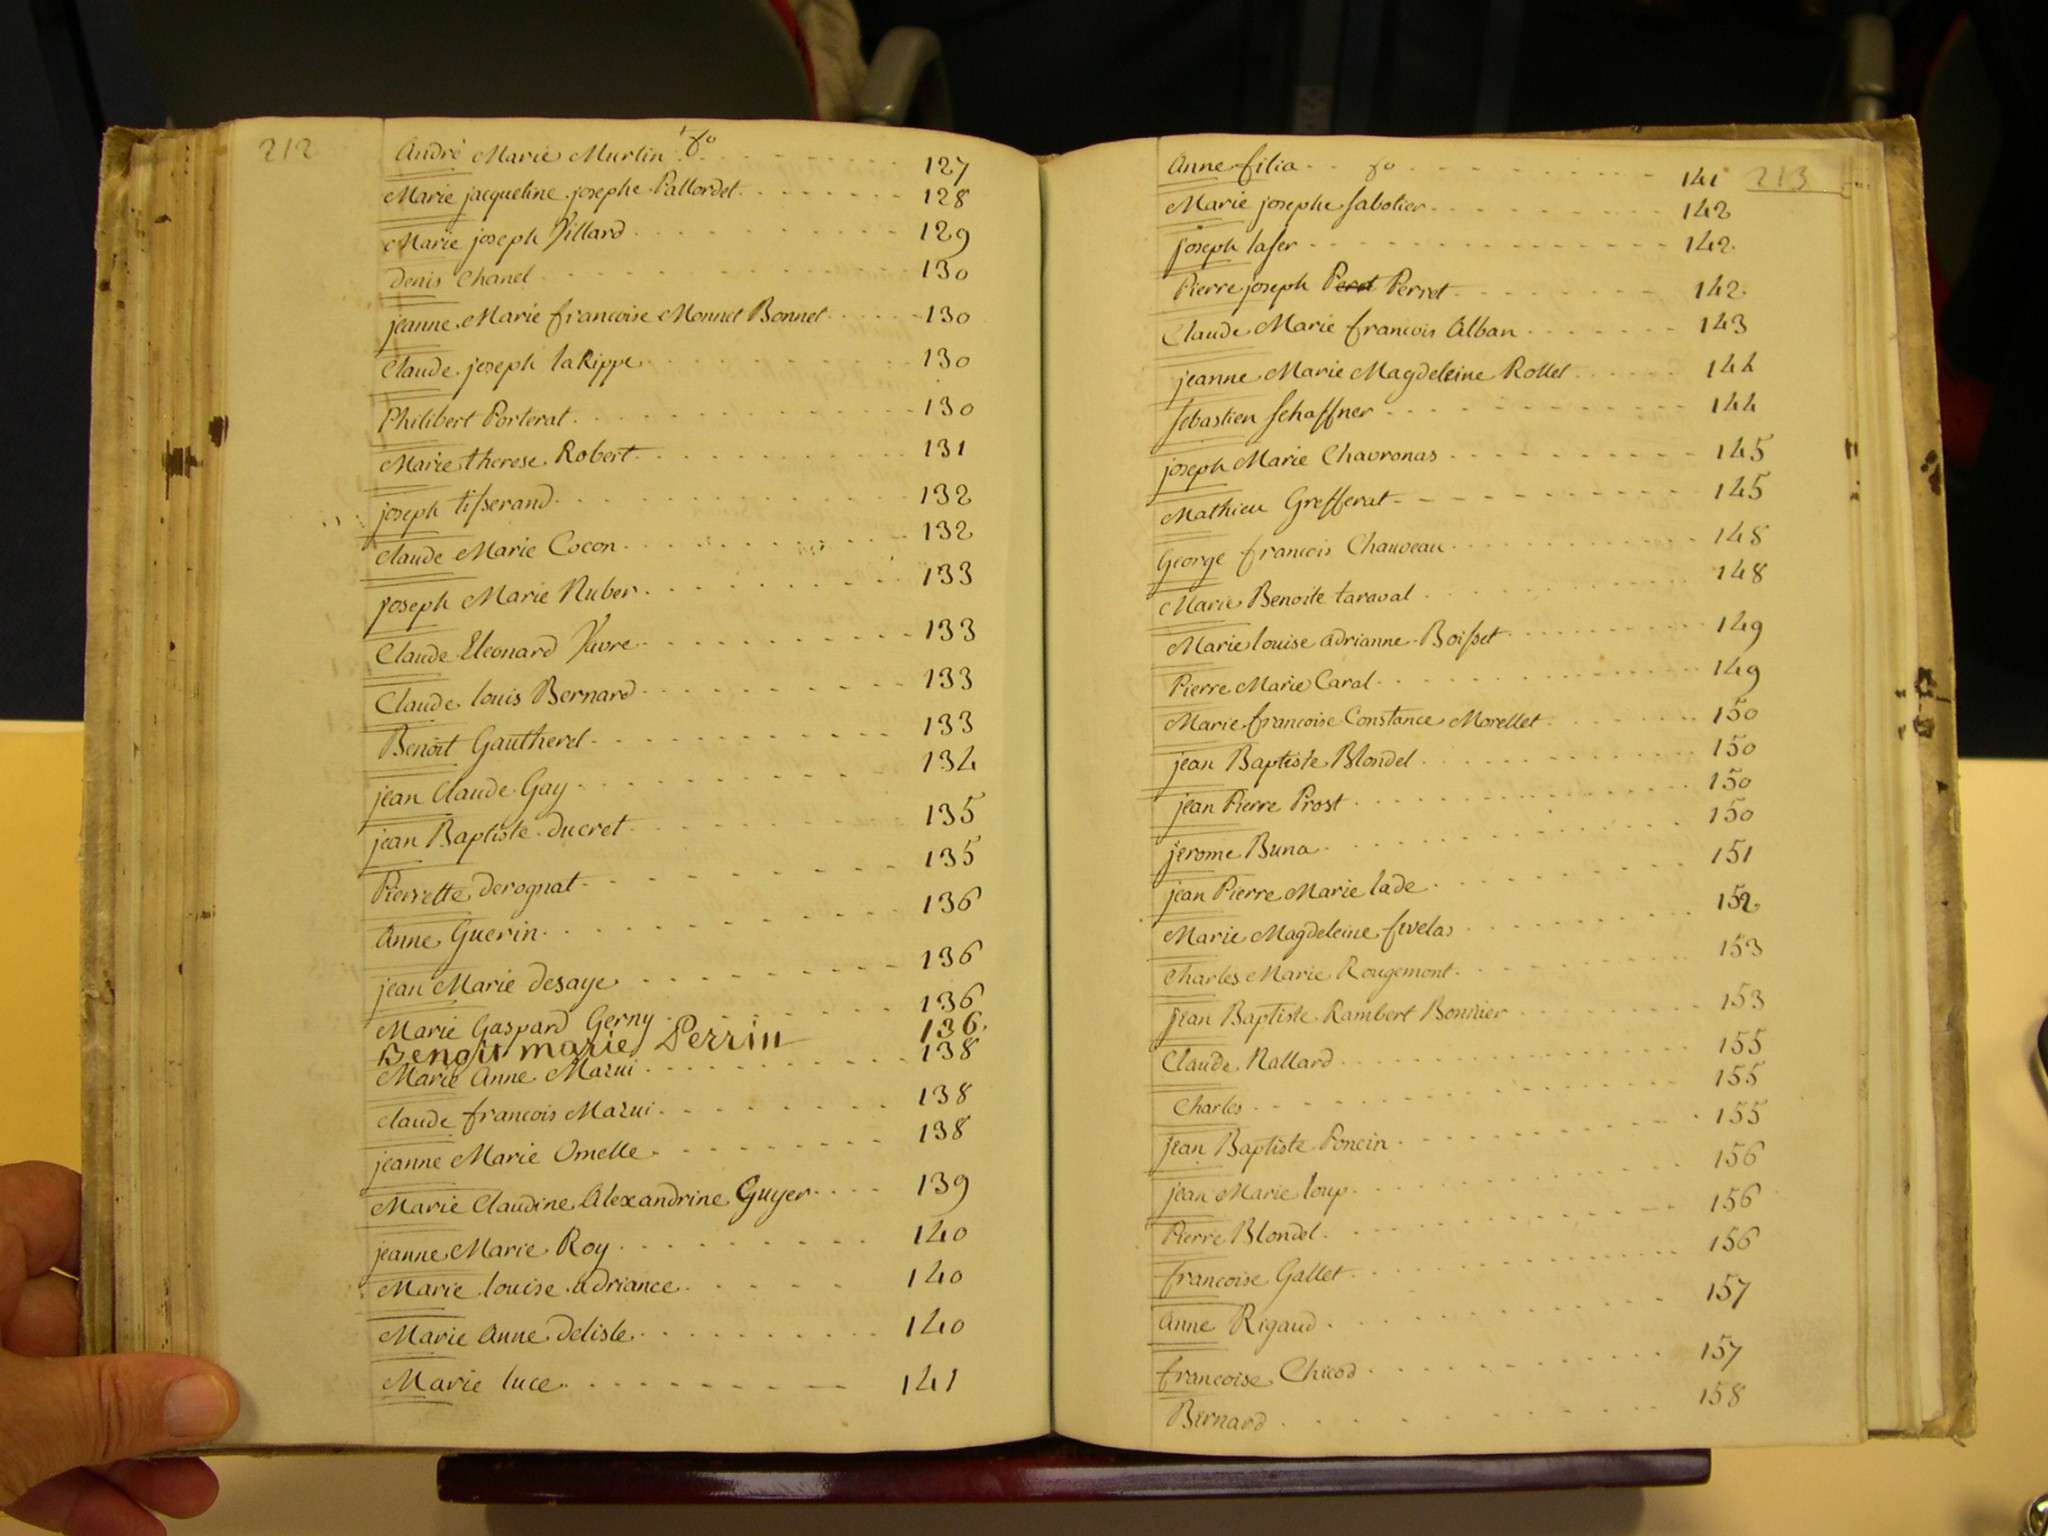 212
André Marie Murtin fo 127
Marie jacqueline josephe Pallordet 128
Marie joseph Villard 129
Denis Chanel 130
jeanne Marie francoise Monnet Bonnet 130
Claude joseph laRippe 130
Philibert Porterat 130
Marie therese Robert 131
joseph tisserand 132
Claude Marie Cocon 132
joseph Marie Nuber 133
Claude Eleonard favre 133
Claude louis Bernard 133
Benoit Gautheret 133
jean Claude Gay 134
jean Baptiste ducret 135
Pierrette derognat 135
Anne Guerin 136
jean Marie desaye 136
Marie Gaspard Gerny 136
Benoit marie Perrin 136
Marie Anne Mazui 138
Claude francois Mazui 138
jeanne Marie Omelle 138
Marie Claudine Alexandrine Guyer 139
jeanne Marie Roy 140
Marie louise adriance 140
Marie Anne delisle 140
Marie luce 141
213
Anne filia fo 141
Marie josephe sabotier 142
joseph laser 142
Pierre joseph Peret Perret 142
Claude Marie francois Alban 143
jeanne Marie Magdeleine Rollet 144
sebastien schaffner 144
joseph Marie Chavronas 145
Mathieu Grefferat 145
George francois Chauveau 148
Marie Benoite taraval 148
Marie louise adrianne Boisset 149
Pierre Marie Caral 149
Marie francoise Constance Morellet 150
jean Baptiste Blondel 150
jean Pierre Prost 150
jerome Buna 150
jean Pierre Marie lade 151
Marie Magdeleine fivelas 152
Charles Marie Rougemont 153
jean Baptiste Rambert Bonnier 153
Claude Nallard 155
Charles 155
jean Baptiste Poncin 155
jean Marie loup 156
Pierre Blondel 156
francoise Gallet 156
Anne Rigaud 157
francoise Chicod 157
Bernard 158